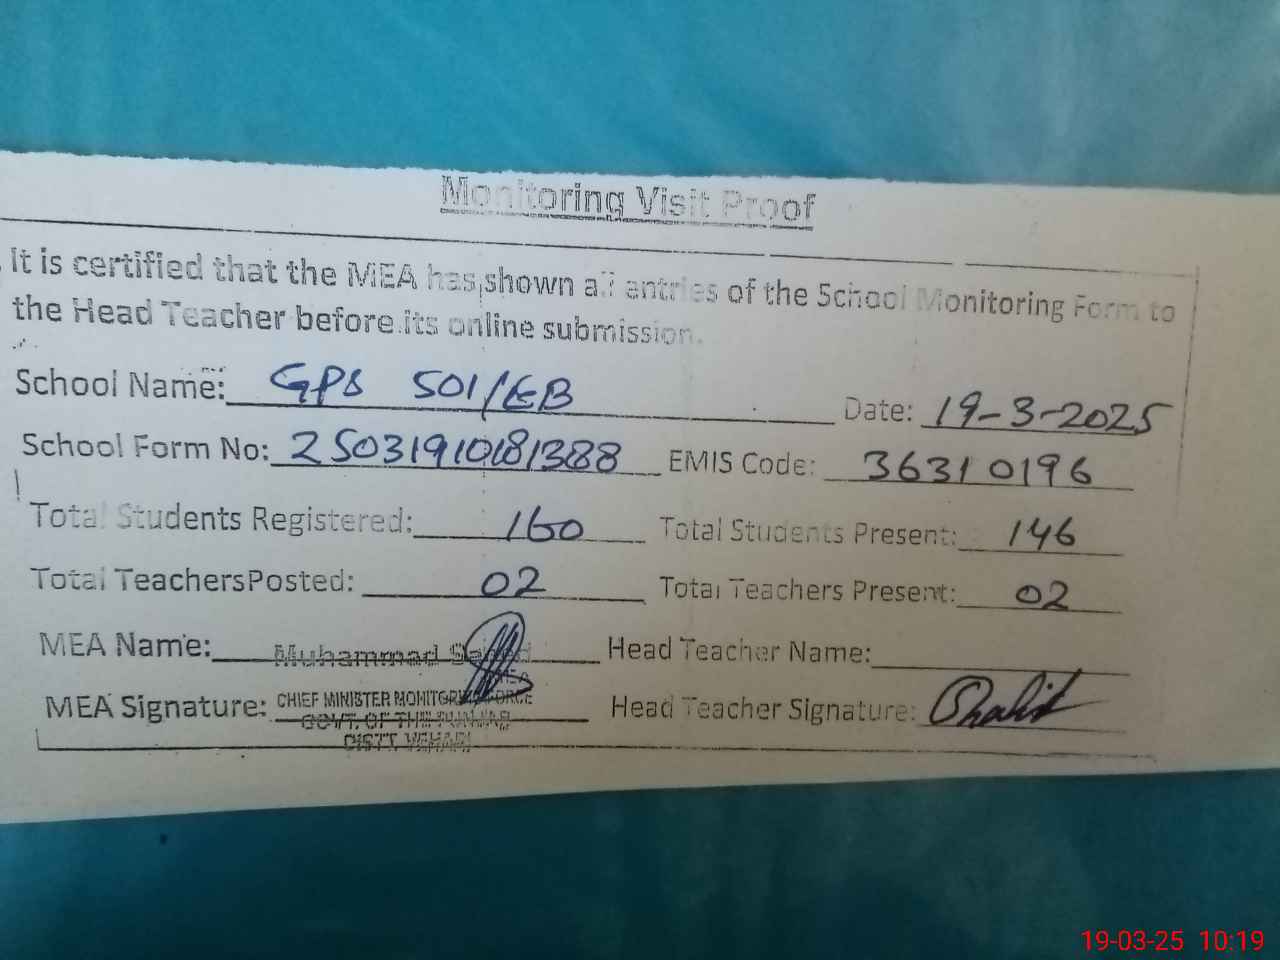 Monitoring Visit Proof
It is certified that the MEA has shown all entries of the School Monitoring Form to
the Head Teacher before its online submission.
School Name: GPS 501/EB Date: 19-3-2025
School Form No: 25031910181388 EMIS Code: 36310196
Total Students Registered: 160 Total Students Present: 146
Total Teachers Posted: 02 Total Teachers Present: 02
MEA Name: Muhammad Head Teacher Name:
MEA
MEA Signature: CHIEF MINISTER MONITORING FORCE Head Teacher Signature:
GOVT. OF THE PUNJAB
DISTT. VEHARI
19-03-25 10:19